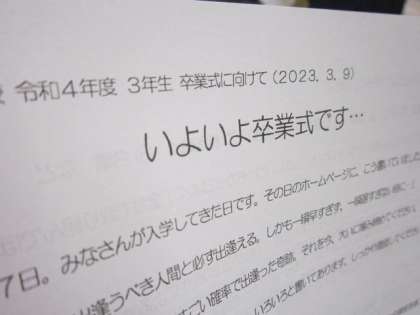 令和4年度 3年生 卒業式に向けて（2023．3．9）
いよいよ卒業式です…
7日。みなさんが入学してきた日です。その日のホームページに、こう書いていました
出逢うべき人間と必ず出逢える。しかも一瞬早すぎず、一瞬遅すぎない時に
すごい確率で出逢った奇跡。それを今、大いに
いろいろと書いてあります。しっかり